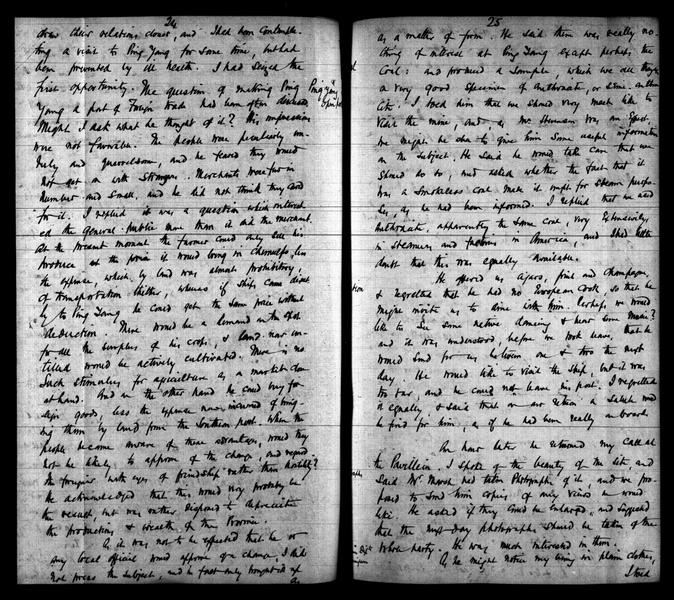 24
draw their relations closer, and I had been contempla-
ting a visit to Ping Yang for some time, but had
been prevented by ill health. I had seized the
first opportunity. The question of making Ping
Yang a port of Foreign trade had been often discussed
Might I ask what he thought of it? His impressions
were not favorable. The people were peculiarly un-
ruly and quarrelsome, and he feared they would
not get on with strangers. Merchants were few in
number and small, and he did not think they cared
for it. I replied it was a question which interest-
ed the general public more than it did the merchant.
At the present moment the farmer could only sell his
produce at the price it would bring in Chemulpo, less
the expense, which by land was almost prohibitory,
of transportation thither, whereas if ships came direct
to Ping Yang he could get the same price without
deduction. There would be a demand on the spot
for all the surplus of his crops, & land now un-
tilled would be actively cultivated. There is no
such stimulus for agriculture as a market close
at hand. And on the other hand he could buy for-
eign goods, less the expense now incurred of bring-
ing them by land from the Southern port. When the
people became aware of these advantages, would they
not be likely to approve of the change, and regard
the foreigner with eyes of friendship rather than hostility?
He acknowledged that this would very probably be
the result, but was rather disposed to depreciate
the productions & wealth of the Province.
As it was not to be expected that he or
any local official would approve of a change, I did
not press the subject, and in fact only brought it up
as
Ping Yang
25
as a matter of form. He said there was really no-
thing of interest at Ping Yang except perhaps the
Coal: and produced a sample, which we all thought
a very good specimen of anthracite, or semi-anthra-
cite. I told him that we should very much like to
visit the mine, and, as Mr was an expert,
we might be able to give him some useful information
on the subject. He said he would take care that we
should do so, and asked whether the fact that it
was a smokeless coal made it unfit for steam purpo-
ses, as he had been informed. I replied that we used
anthracite, apparently the same coal, very extensively,
in steamers and factories in America, and I had little
doubt that this was equally available.
He offered us cigars, fruit and champagne,
& regretted that he had no European Cook, so that he
might invite us to dine with him. Perhaps we would
like to see some native dancing & hear some music?
and it was understood, before we took leave, that he
would send for us between one & two the next
day. He would like to visit the ship, but it was
too far, and he could not leave his post. I regretted
it equally, & said that on our return a salute would
be fired for him, as if he had been really on board.
An hour later he returned my call at
the Pavilion. I spoke of the beauty of the site and
said Mr had taken photographs of it, and we pro-
posed to send him copies of any views he would
like. He asked if they could be enlarged, and suggested
that the next day photographs should be taken of the
whole party. He was much interested in them.
As he might notice my being in plain clothes,
I told